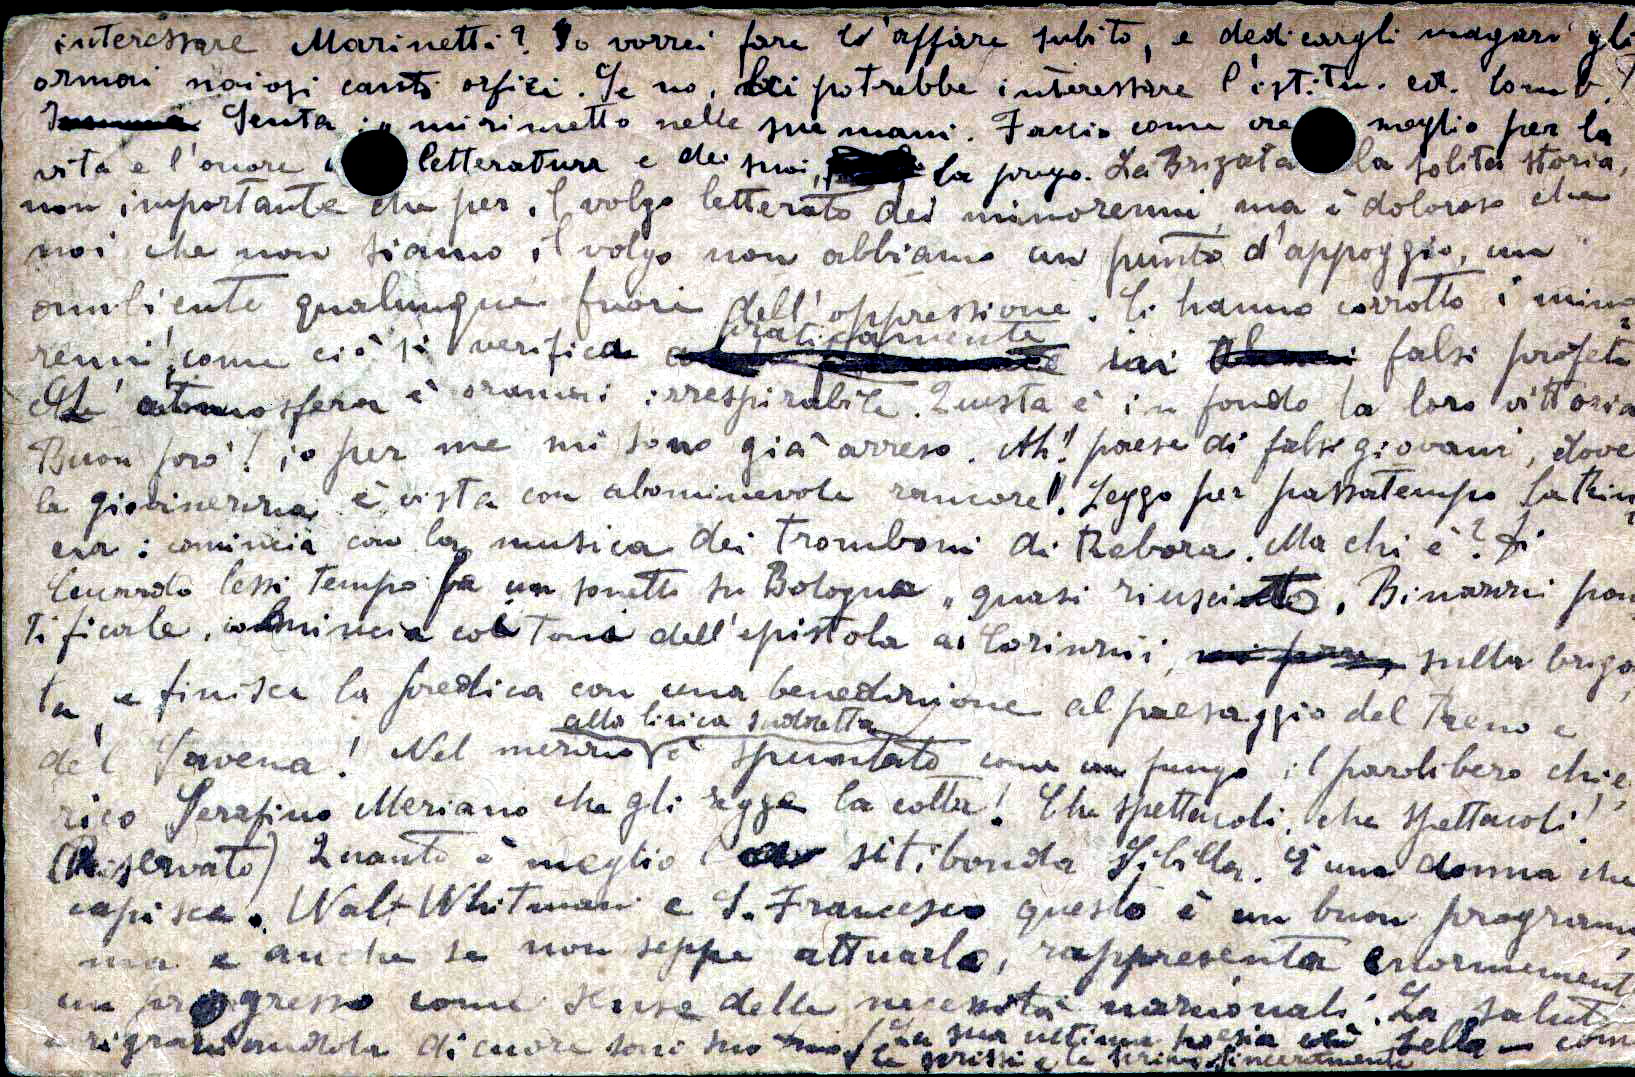 interessare Marinetti? Io vorrei fare l'affare subito, e dedicargli magari gli
ormai noiosi canti orfici. Se no, Lei potrebbe interessare l'istitu. ed. lomb.
Senta: mi rimetto nelle sue mani. Faccio come meglio per la
vita e l'onore letteratura e dei suoi, la prego. La Brigata la solita storia,
non importante che per il volgo letterato dei minorenni, ma è doloroso che
noi che non siamo il volgo non abbiamo un punto d'appoggio, un
ambiente qualunque fuori dell'oppressione. Ci hanno corrotto i mino
renni come ciò si verifica praticamente nei falsi profeti
L'atmosfera è oramai irrespirabile. Questa è in fondo la loro vittoria
Buon pro'! io per me mi sono già arreso. Ah! paese di falsi giovani, dove
la giovinezza è vista con abominevole rancore! Leggo per passatempo la Riu
comincia con la musica dei tromboni di Rebora. Ma chi è? Di
Leonardo lessi tempo fa un sonetto su Bologna, quasi riuscito. Binazzi pon
tificale, comincia coi toni dell'epistola ai Corinzii, sulla briga
ta, e finisce la predica con una benedizione al paesaggio del Reno e
del Savena! Nel mezzo alla lirica suddetta è spuntato come un fungo il parolibero chie
rico Serafino Meriano che gli regge la cotta! Che spettacoli, che spettacoli!
(Riservato) Quanto è meglio la sitibonda Sibilla. È una donna che
capisce. Walt Whitman e S. Francesco questo è un buon program
ma e anche se non seppe attuarlo, rappresenta enormemente
un progresso come sense delle necessità nazionali. La saluto
ringraziandola di cuore sono suo (La sua ultima poesia era bella - come
le scrissi e le scrivo sinceramente